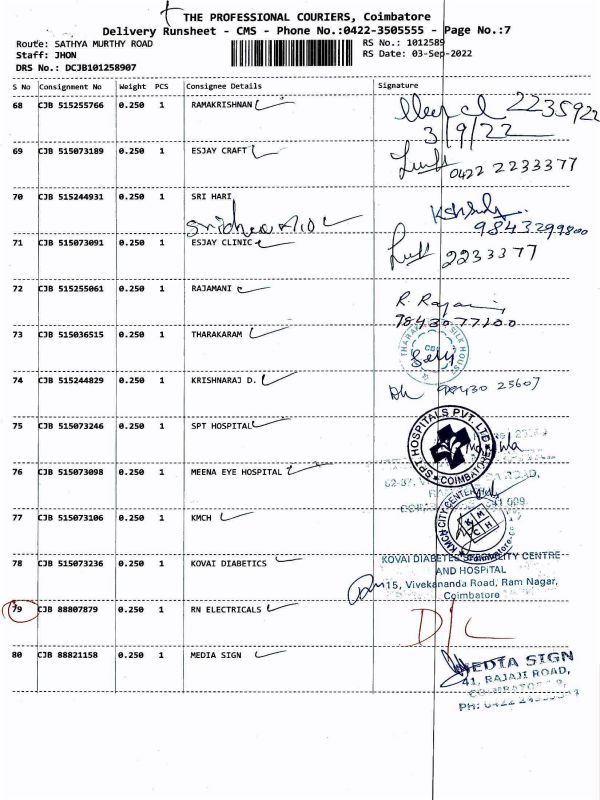 THE PROFESSIONAL COURIERS, Coimbatore
Delivery Runsheet - CMS - Phone No.:0422-3505555 - Page No.:7
Route: SATHYA MURTHY ROAD
RS No.: 1012589
Staff: JHON
RS Date: 03-Sep-2022
DRS No.: DCJB101258907
S No Consignment No Weight PCS Consignee Details Signature
68 CJB 515255766 0.250 1 RAMAKRISHNAN
2235922
3/9/22
69 CJB 515073189 0.250 1 ESJAY CRAFT
0422 2233377
70 CJB 515244931 0.250 1 SRI HARI
9843299800
71 CJB 515073091 0.250 1 ESJAY CLINIC
2233377
72 CJB 515255061 0.250 1 RAJAMANI
R. Rajamani
7843077100
73 CJB 515036515 0.250 1 THARAKARAM
SILK HOUSE
74 CJB 515244829 0.250 1 KRISHNARAJ D.
98430 25607
75 CJB 515073246 0.250 1 SPT HOSPITAL
SPT HOSPITALS PVT. LTD
COIMBATORE
76 CJB 515073098 0.250 1 MEENA EYE HOSPITAL
77 CJB 515073106 0.250 1 KMCH
KMCH CITY CENTER
KMCH
Coimbatore
78 CJB 515073236 0.250 1 KOVAI DIABETICS
KOVAI DIABETES SPECIALITY CENTRE
AND HOSPITAL
15, Vivekananda Road, Ram Nagar,
Coimbatore
79 CJB 88807879 0.250 1 RN ELECTRICALS
D/L
80 CJB 88821158 0.250 1 MEDIA SIGN
MEDIA SIGN
41, RAJAJI ROAD,
PH: 0422